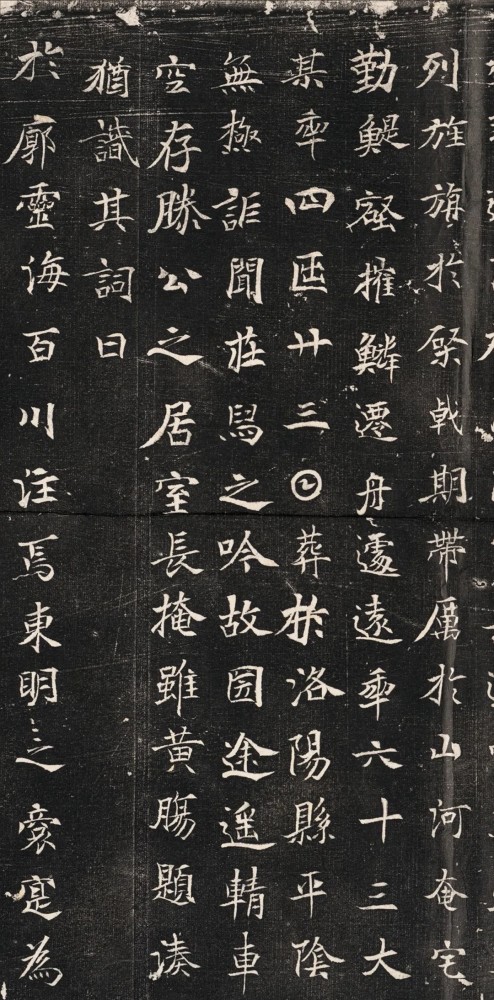 列旌旗於棨戟期帶厲於山河奄宅
勤鯷壑摧鱗遷舟〻遽遠𠡦六十三大
某𠡦四𠥱廿三𡆠葬於洛陽縣平陰
無極詎聞莊舄之吟故圀途遥輤車
空存滕公之居室長掩雖黃腸題湊
猶識其詞曰
於廓靈海百川注焉東明〻之裔寔為